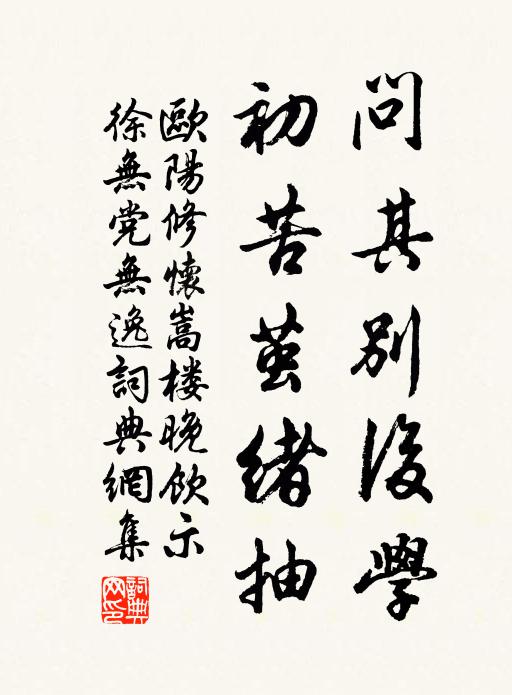 問其別後學
初若茧緒抽
歐陽修懷嵩楼晚飲示
徐無党無逸詞典網集
詞典网印